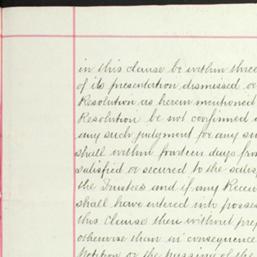 in this clause be within three
of its presentation dismissed or
Resolution as herein mentioned
Resolution be not confirmed
any such judgment for any su
shall within fourteen days from
satisfied or secured to the satis
the Trustees and if any Receiv
shall have entered into posses
this Clause then without prej
otherwise than in consequence
Petition or the passing of the